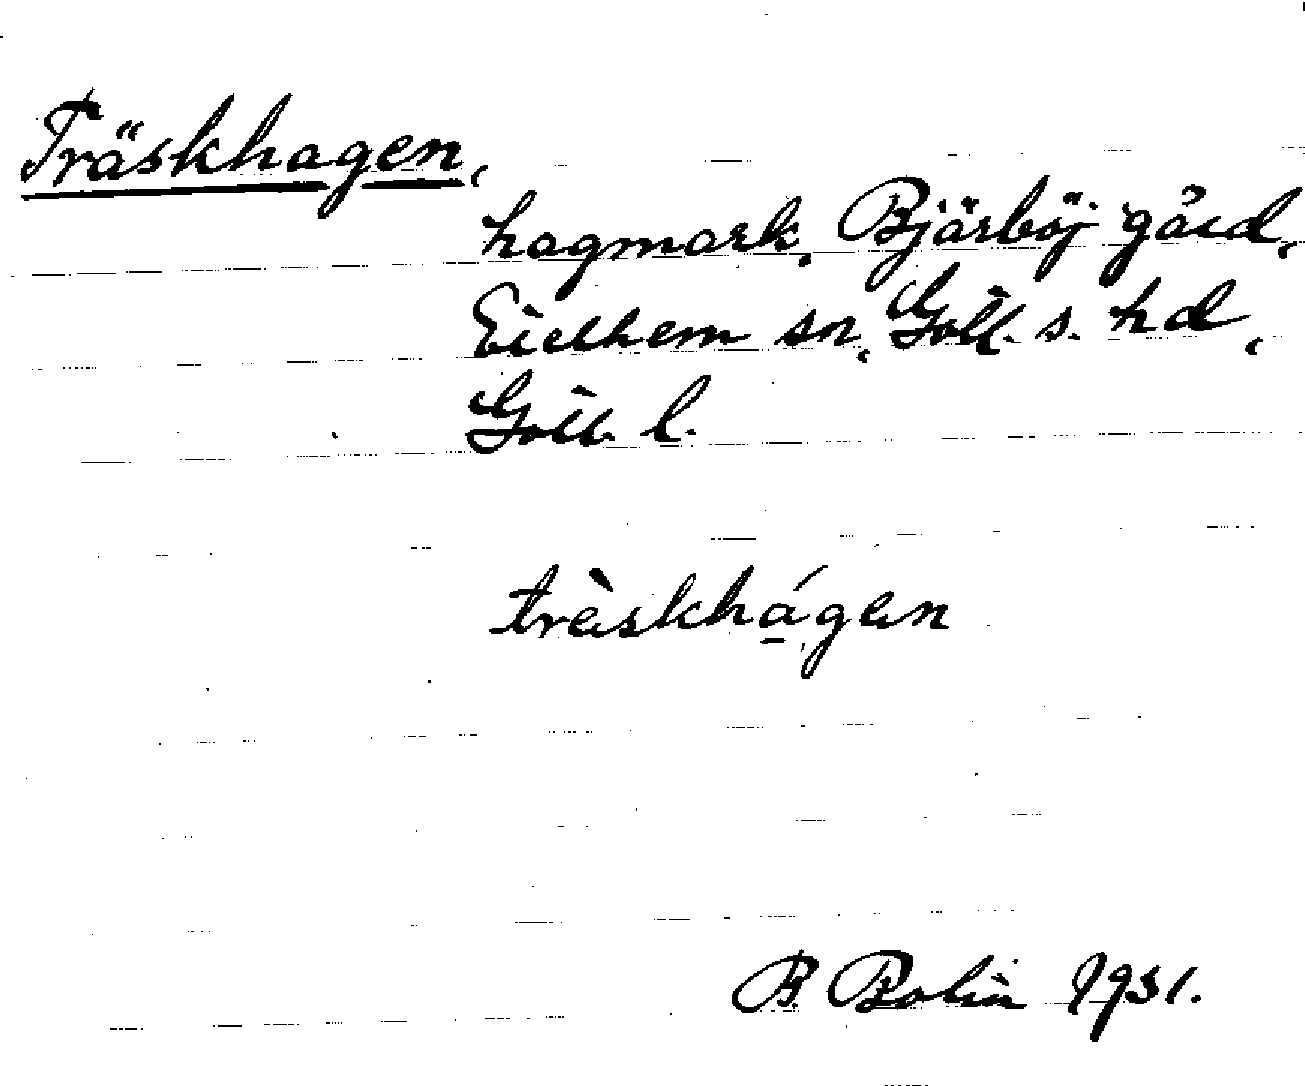 Träskhagen,
hagmark, Bjärböj gård,
Eielhem sn, Gotl. s. hd,
Gotl. l.
träskhágen
B. Bolin 1931.